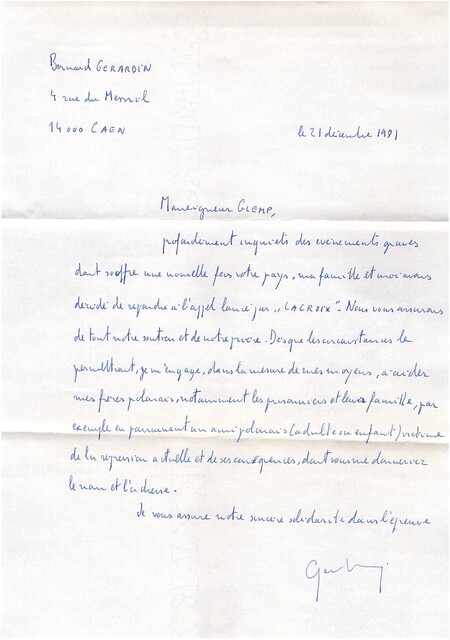 Bernard GERARDIN
4 rue du Mesnil
14000 CAEN
le 21 décembre 1981
Monseigneur GLEMP,
profondement inquiets des evénements graves
dont souffre une nouvelle fois votre pays, ma famille et moi avons
décidé de repondre à l'appel lancé par "LACROIX". Nous vous assurons
de tout notre soutien et de notre prière. Dès que les circonstances le
permettront, je m'engage, dans la mesure de mes moyens, à aider
mes frères polonais, notamment les prisonniers et leurs famille, par
exemple en parrainant un ami polonais (adulte ou enfant) victime
de la repression actuelle et de ses conséquences, dont vous me donnerez
le nom et l'adresse.
Je vous assure notre sincère solidarité dans l'épreuve